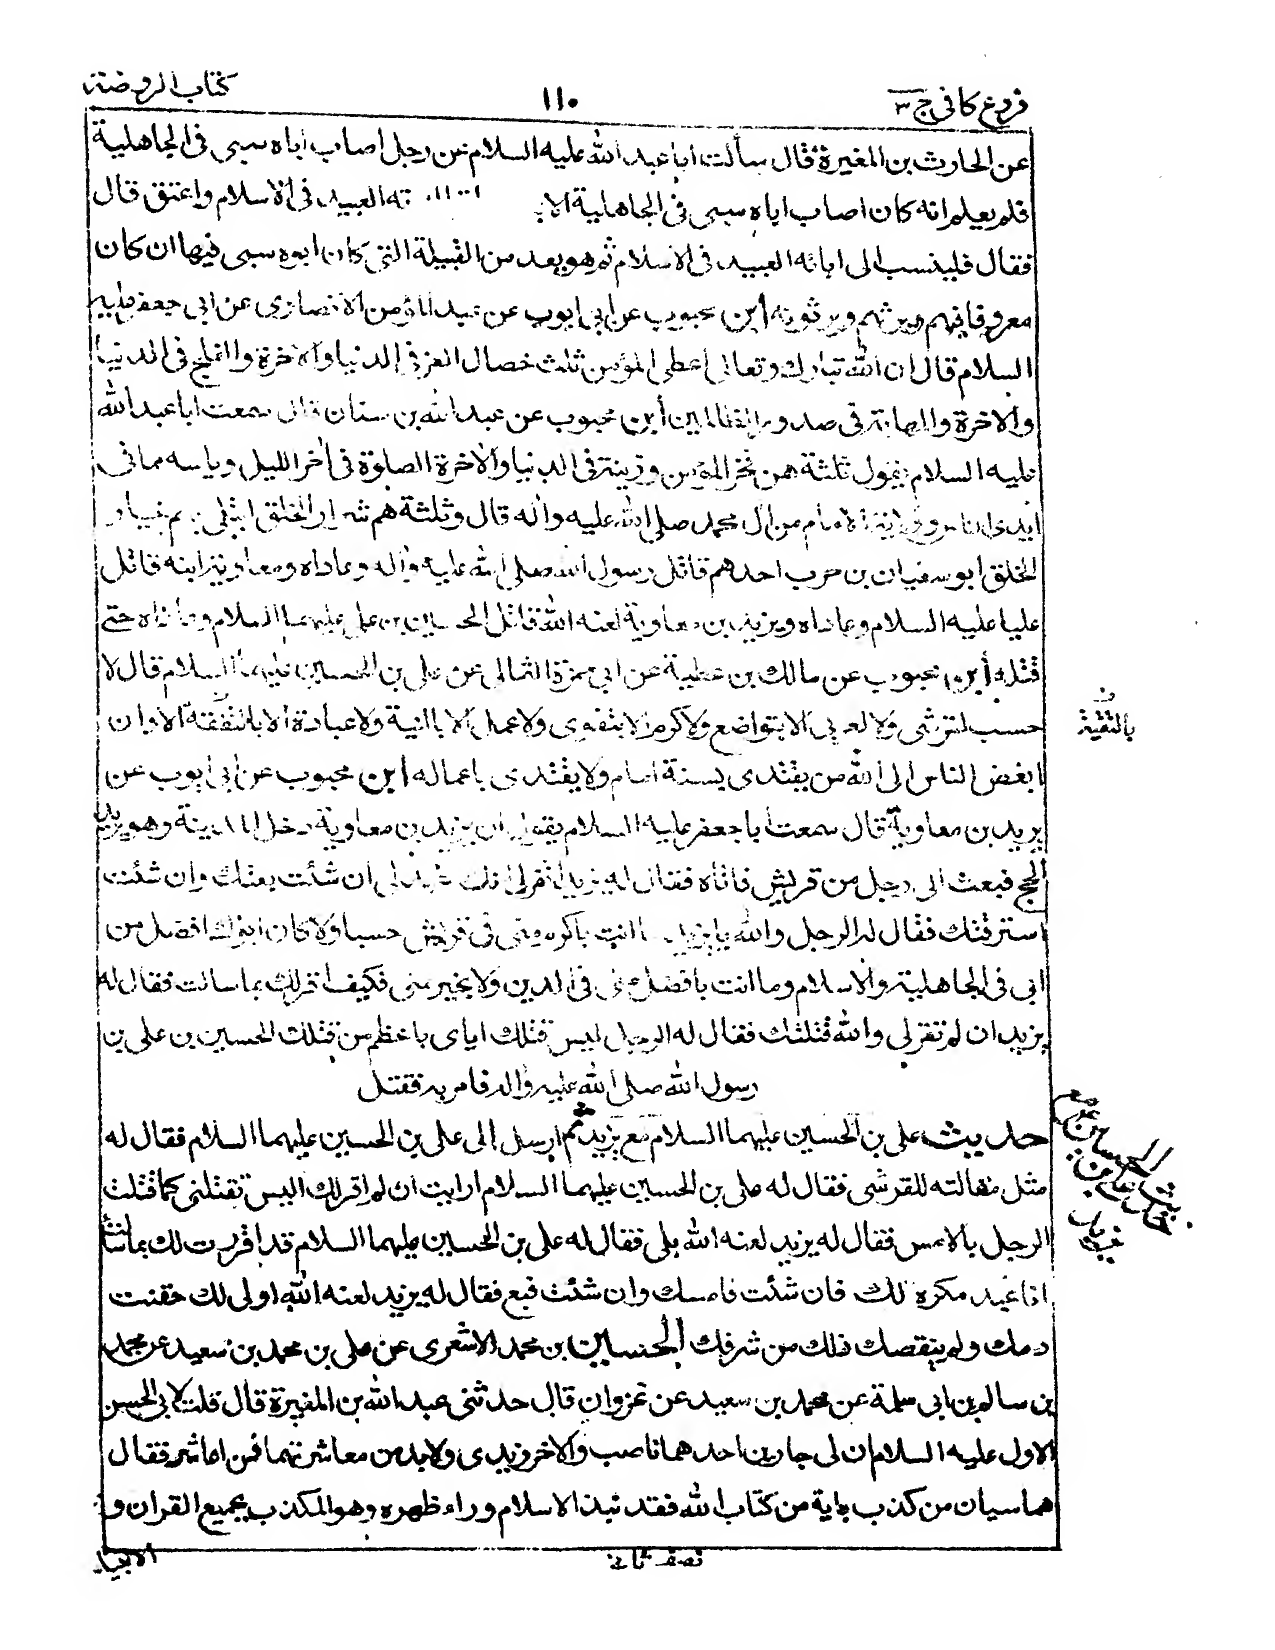 فروع كافى ج ٣
١١٠
كتاب الروضة
عن الحارث بن المغيرة قال سألت ابا عبد الله عليه السلام عن رجل اصاب اباه سبى فى الجاهلية
فلم يعلم انه كان اصاب اباه سبى فى الجاهلية الا العبيد فى الاسلام واعتق قال
فقال فلينسب الى ابائه العبيد فى الاسلام ثم هو يعد من القبيلة التى كان ابوه سبى فيها ان كان
معروفا فيهم ويرثهم ويرثونه ابن محبوب عن ابى ايوب عن عبد المؤمن الانصارى عن ابى جعفر عليه
السلام قال ان الله تبارك وتعالى اعطى المؤمن ثلث خصال العز فى الدنيا والاخرة والفلج فى الدنيا
والاخرة والمهابة فى صدور الظالمين ابن محبوب عن عبد الله بن سنان قال سمعت ابا عبد الله
عليه السلام يقول ثلثة هن فخر المؤمن وزينة فى الدنيا والاخرة الصلوة فى اخر الليل وياسه مما فى
ايدى الناس وولايته الامام من ال محمد صلى الله عليه واله قال وثلثة هم شرار الخلق ابتلى بهم خيار
الخلق ابو سفيان بن حرب احدهم قاتل رسول الله صلى الله عليه واله وعاداه ومعاوية ابنه قاتل
عليا عليه السلام وعاداه ويزيد بن معاوية لعنه الله قاتل الحسين بن على عليهما السلام وعاداه حتى
قتله ابن محبوب عن مالك بن عطية عن ابى حمزة الثمالى عن على بن الحسين عليهما السلام قال لا
حسب لقرشى ولا لعربى الا بتواضع ولا كرم الا بتقوى ولا عمل الا بالنية ولا عبادة الا بالتفقه الا وان
بالتقية
ابغض الناس الى الله من يقتدى بسنة امام ولا يقتدى باعماله ابن محبوب عن ابى ايوب عن
بريد بن معاوية قال سمعت ابا جعفر عليه السلام يقول ان يزيد بن معاوية دخل المدينة وهو يريد
الحج فبعث الى رجل من قريش فاتاه فقال له يزيد اتقر لى انك عبد لى ان شئت بعتك وان شئت
استرقتك فقال له الرجل والله يا يزيد ما انت باكرم منى فى قريش حسبا ولا كان ابوك افضل من
ابى فى الجاهلية والاسلام وما انت بافضل منى فى الدين ولا بخير منى فكيف اقر لك بما سالت فقال له
يزيد ان لم تقر لى والله قتلتك فقال له الرجل ليس قتلك اياى باعظم من قتلك الحسين بن على بن
رسول الله صلى الله عليه واله فامر به فقتل
حديث على بن الحسين عليهما السلام مع يزيد ثم ارسل الى على بن الحسين عليهما السلام فقال له
مثل مقالته للقرشى فقال له على بن الحسين عليهما السلام ارايت ان لم اقر لك اليس تقتلنى كما قتلت
الرجل بالامس فقال له يزيد لعنه الله بلى فقال له على بن الحسين عليهما السلام قد اقررت لك بما سالت
انا عبد مكره لك فان شئت فامسك وان شئت فبع فقال له يزيد لعنه الله اولى لك حقنت
دمك ولم ينقصك ذلك من شرفك الحسين بن محمد الاشعرى عن على بن محمد بن سعيد عن محمد
بن سالم بن ابى سلمة عن محمد بن سعيد عن غزوان قال حدثنى عبد الله بن المغيرة قال قلت لابى الحسن
الاول عليه السلام ان لى جارين احدهما ناصب والاخر زيدى ولا بد من معاشرتهما فمن اعاشر فقال
هما سيان من كذب باية من كتاب الله فقد نبذ الاسلام وراء ظهره وهو المكذب بجميع القران و
نصف ثانى
الانبياء